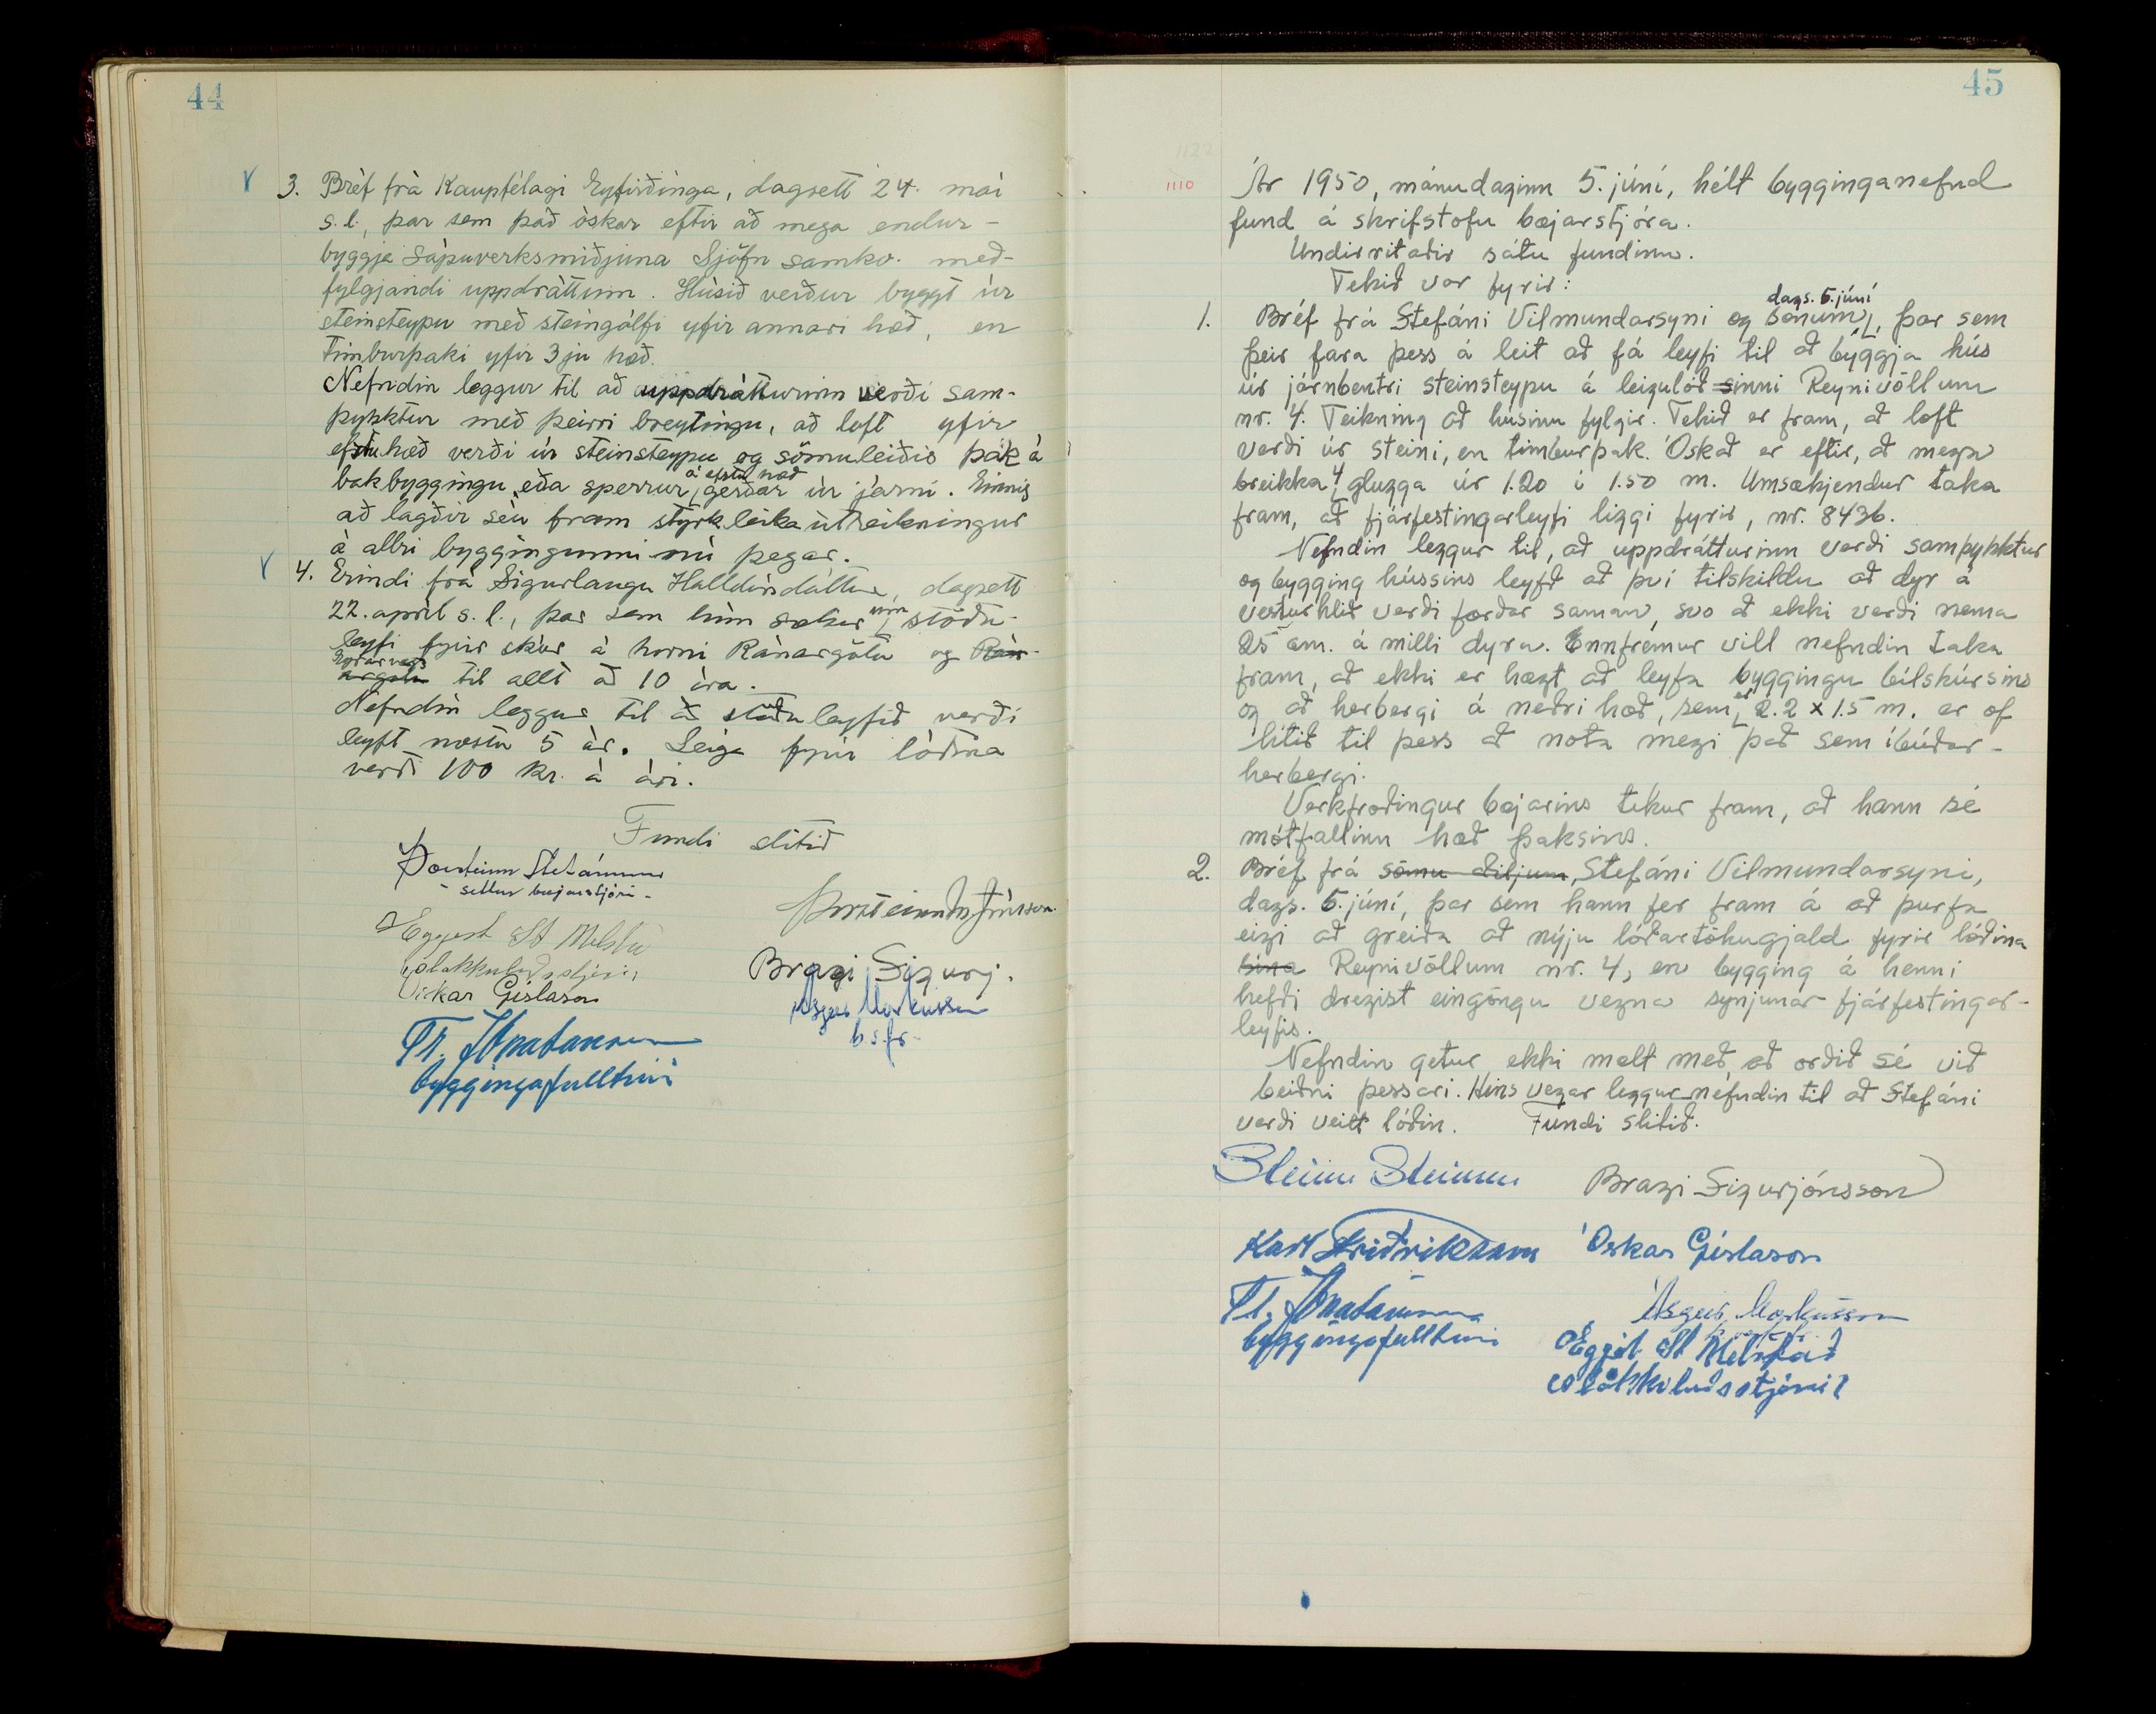 44
3. Bréf frá Kaupfélagi Eyfirðinga, dagsett 24. maí
s.l., þar sem það óskar eftir að mega endur-
byggja Sápuverksmiðjuna Sjöfn samkv. með-
fylgjandi uppdráttum. Húsið verður byggt úr
steinsteypu með steingólfi yfir annari hæð, en
timburþaki yfir 3ju hæð.
Nefndin leggur til að uppdrátturinn verði sam-
þykktur með þeirri breytingu, að loft yfir
efstu hæð verði úr steinsteypu og sömuleiðis þak á
bakbyggingu eða sperrur á efstu hæð gerðar úr járni. Einnig
að lagðir séu fram styrkleika útreikningur
á allri byggingunni nú þegar.
4. Erindi frá Sigurlaugu Halldórsdóttur, dagsett
22. apríl s.l., þar sem hún sækir um stöðu-
leyfi fyrir skúr á horni Ránargötu og Rán-
Eyrarvegs
argötu til allt að 10 ára.
Nefndin leggur til að stöðuleyfið verði
leyft næstu 5 ár. Leiga fyrir lóðina
verði 100 kr. á ári.
Fundi slitið
Þorsteinn Stefánsson
- settur bæjarstjóri -
Eggert St Melstað
slökkuliðsstjóri
Óskar Gíslason
Bragi Sigurj.
Ásgeir Markússon
b.s.fr.
Tr. Jónatansson
byggingafulltrúi
45
1122
1110
Ár 1950, mánudaginn 5. júní, hélt bygginganefnd
fund á skrifstofu bæjarstjóra.
Undirritaðir sátu fundinn.
Tekið var fyrir:
1. Bréf frá Stefáni Vilmundarsyni og sonum, dags. 5. júní, þar sem
þeir fara þess á leit að fá leyfi til að byggja hús
úr járnbentri steinsteypu á leigulóð sinni Reynivöllum
nr. 4. Teikning að húsinu fylgir. Tekið er fram, að loft
verði úr steini, en timburþak. Óskað er eftir, að mega
breikka 4 glugga úr 1.20 í 1.50 m. Umsækjendur taka
fram, að fjárfestingarleyfi liggi fyrir, nr. 8436.
Nefndin leggur til, að uppdrátturinn verði samþykktur
og bygging hússins leyfð að því tilskildu að dyr á
vesturhlið verði færðar saman, svo að ekki verði nema
25 cm. á milli dyra. Ennfremur vill nefndin taka
fram, að ekki er hægt að leyfa byggingu bílskúrsins
og að herbergi á neðri hæð, sem er 2.2 x 1.5 m. er of
lítið til þess að nota megi það sem íbúðar-
herbergi.
Verkfræðingur bæjarins tekur fram, að hann sé
mótfallinn hæð þaksins.
2. Bréf frá sömu aðiljum, Stefáni Vilmundarsyni,
dags. 5. júní, þar sem hann fer fram á að þurfa
eigi að greiða að nýju lóðartökugjald fyrir lóðina
sína Reynivöllum nr. 4, en bygging á henni
hefði dregist eingöngu vegna synjunar fjárfestingar-
leyfis.
Nefndin getur ekki mælt með, að orðið sé við
beiðni þessari. Hins vegar leggur nefndin til að Stefáni
verði veitt lóðin. Fundi slitið.
Steinn Steinsen
Bragi Sigurjónsson
Karl Friðriksson
Óskar Gíslason
Tr. Jónatansson
byggingafulltrúi
Ásgeir Markússon
Eggert St Melstað
slökkviliðsstjóri